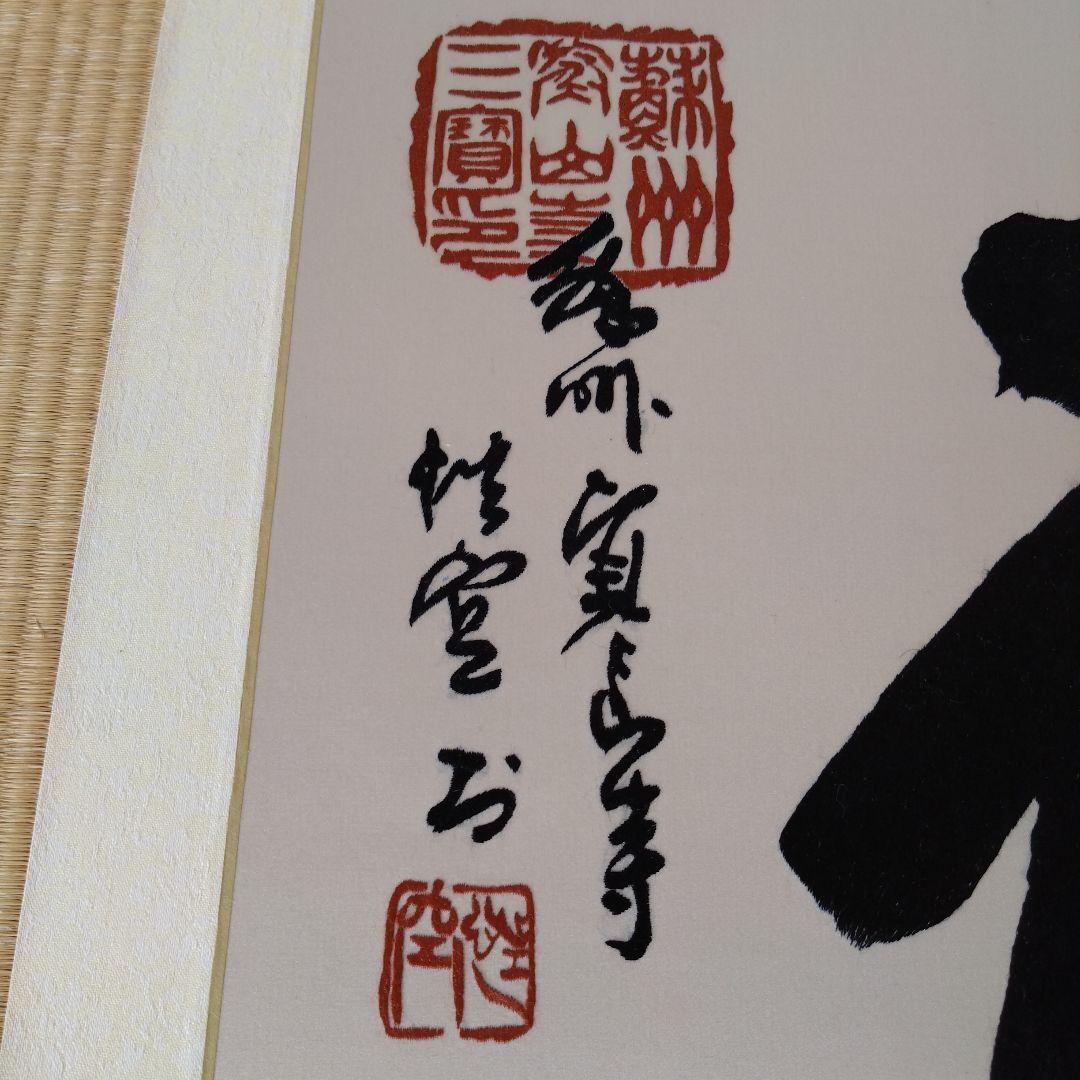 蘇州
寒山寺
三寶印
苏州寒山寺
性空书
性空